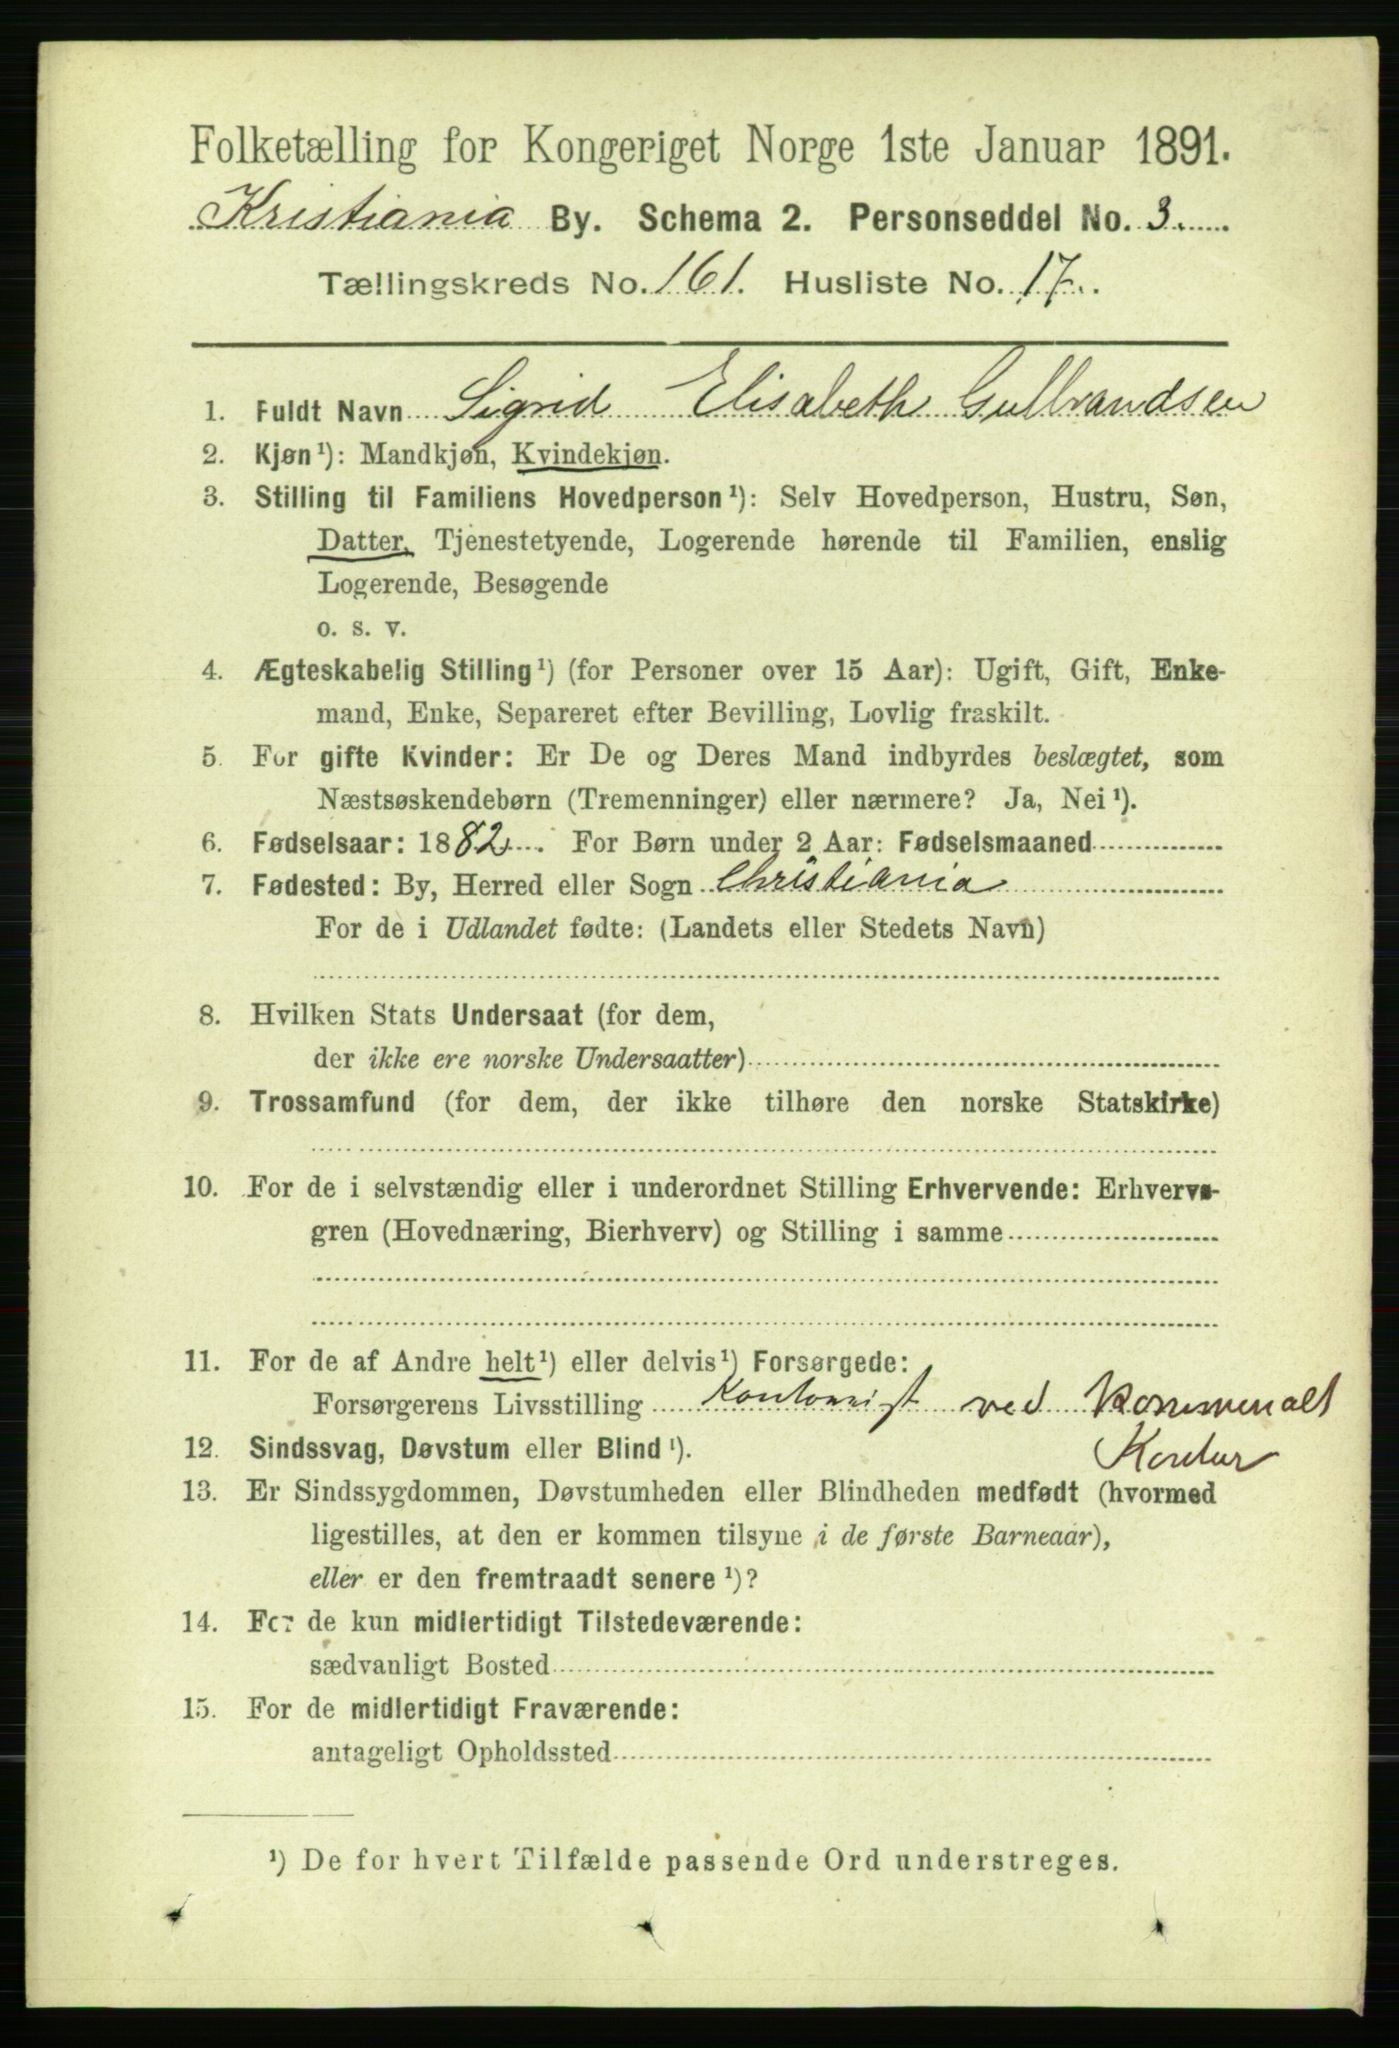 Folketælling for Kongeriget Norge 1ste Januar 1891.
Kristiania By. Schema 2. Personseddel No. 3.
Tællingskreds No. 161. Husliste No. 17.
1. Fuldt Navn Sigrid Elisabeth Gulbrandsen
2. Kjøn¹): Mandkjøn, Kvindekjøn.
3. Stilling til Familiens Hovedperson¹): Selv Hovedperson, Hustru, Søn,
Datter, Tjenestetyende, Logerende hørende til Familien, enslig
Logerende, Besøgende
o. s. v.
4. Ægteskabelig Stilling¹) (for Personer over 15 Aar): Ugift, Gift, Enke-
mand, Enke, Separeret efter Bevilling, Lovlig fraskilt.
5. For gifte Kvinder: Er De og Deres Mand indbyrdes beslægtet, som
Næstsøskendebørn (Tremenninger) eller nærmere? Ja, Nei¹).
6. Fødselsaar: 1882. For Børn under 2 Aar: Fødselsmaaned
7. Fødested: By, Herred eller Sogn Christiania
For de i Udlandet fødte: (Landets eller Stedets Navn)
8. Hvilken Stats Undersaat (for dem,
der ikke ere norske Undersaatter)
9. Trossamfund (for dem, der ikke tilhøre den norske Statskirke)
10. For de i selvstændig eller i underordnet Stilling Erhvervende: Erhvervs-
gren (Hovednæring, Bierhverv) og Stilling i samme
11. For de af Andre helt¹) eller delvis¹) Forsørgede:
Forsørgerens Livsstilling Kontorist ved Kommunalt
12. Sindssvag, Døvstum eller Blind¹). Kontor
13. Er Sindssygdommen, Døvstumheden eller Blindheden medfødt (hvormed
ligestilles, at den er kommen tilsyne i de første Barneaar),
eller er den fremtraadt senere¹)?
14. For de kun midlertidigt Tilstedeværende:
sædvanligt Bosted
15. For de midlertidigt Fraværende:
antageligt Opholdssted
¹) De for hvert Tilfælde passende Ord understreges.